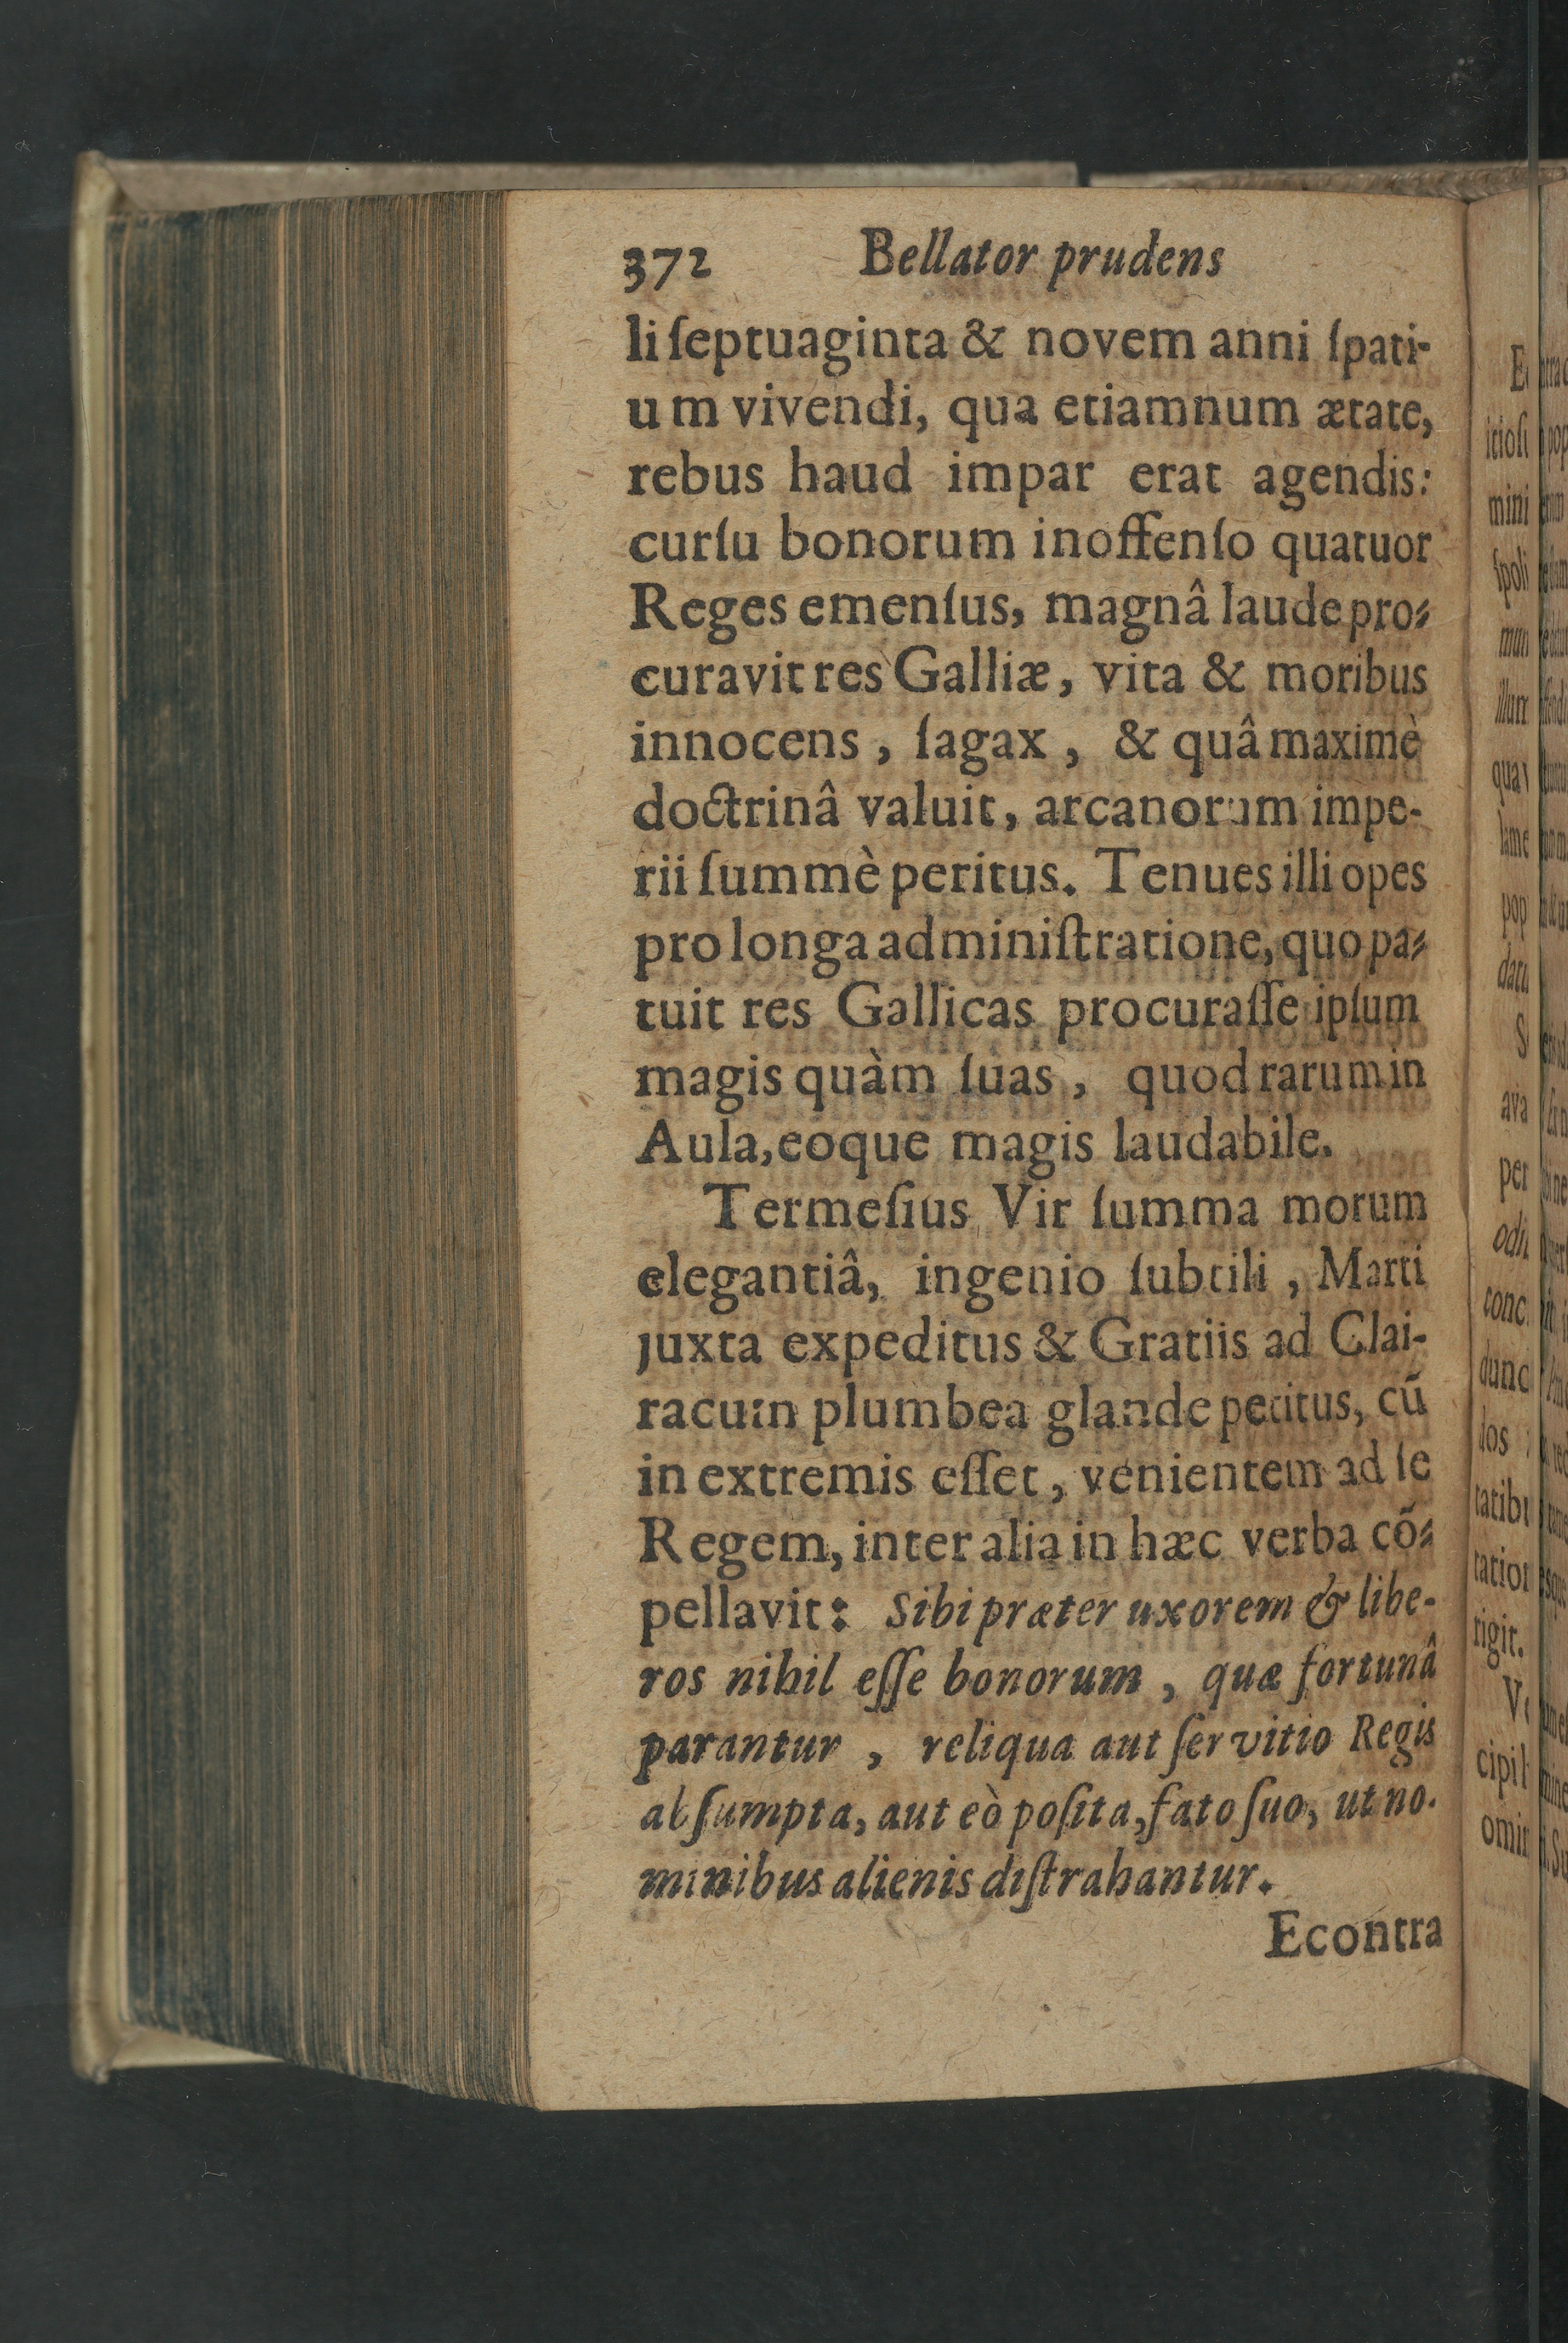 372 Bellator prudens
li ſeptuaginta & novem anni ſpati-
um vivendi, qua etiamnum ætate,
rebus haud impar erat agendis:
curſu bonorum inoffenſo quatuor
Reges emenſus, magnâ laude pro-
curavit res Galliæ, vita & moribus
innocens, ſagax, & quâ maximè
doctrinâ valuit, arcanorum impe-
rii ſummè peritus. Tenues illi opes
pro longa adminiſtratione, quo pa-
tuit res Gallicas procuraſſe ipſum
magis quàm ſuas, quod rarum in
Aula, eoque magis laudabile.
Termeſius Vir ſumma morum
elegantiâ, ingenio ſubtili, Marti
juxta expeditus & Gratiis ad Clai-
racum plumbea glande petitus, cū
in extremis eſſet, venientem ad ſe
Regem, inter alia in hæc verba cō-
pellavit: Sibi præter uxorem & libe-
ros nihil eſſe bonorum, quæ fortunâ
parantur, reliqua aut ſervitio Regis
abſumpta, aut eò poſita, fato ſuo, ut no-
minibus alienis diſtrahantur.
Econtra